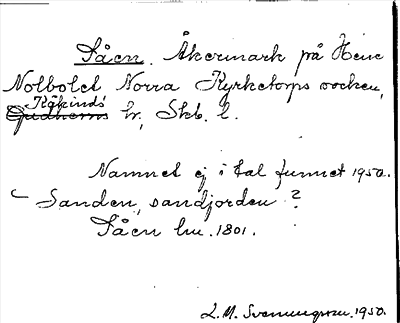 Såen. Åkermark på Hene
Nolbolet, Norra Kyrketorps socken,
Kåkinds
Gudhems hr, Skb. l.
Namnet ej i tal funnet 1950.
Sanden, sandjorden ?
Såen lm. 1801.
L. M. Svenungsson. 1950.